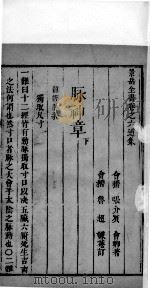 景岳全書卷之六道集
會稽 張介賓 會卿著
會稽 魯超 謙菴訂
脉神章 下
難經脉義
獨取寸口
一難曰十二經皆有動脉獨取寸口以决五臟六腑死生吉凶
之法何謂也然寸口者脉之大會手太陰之脉動也〇二難